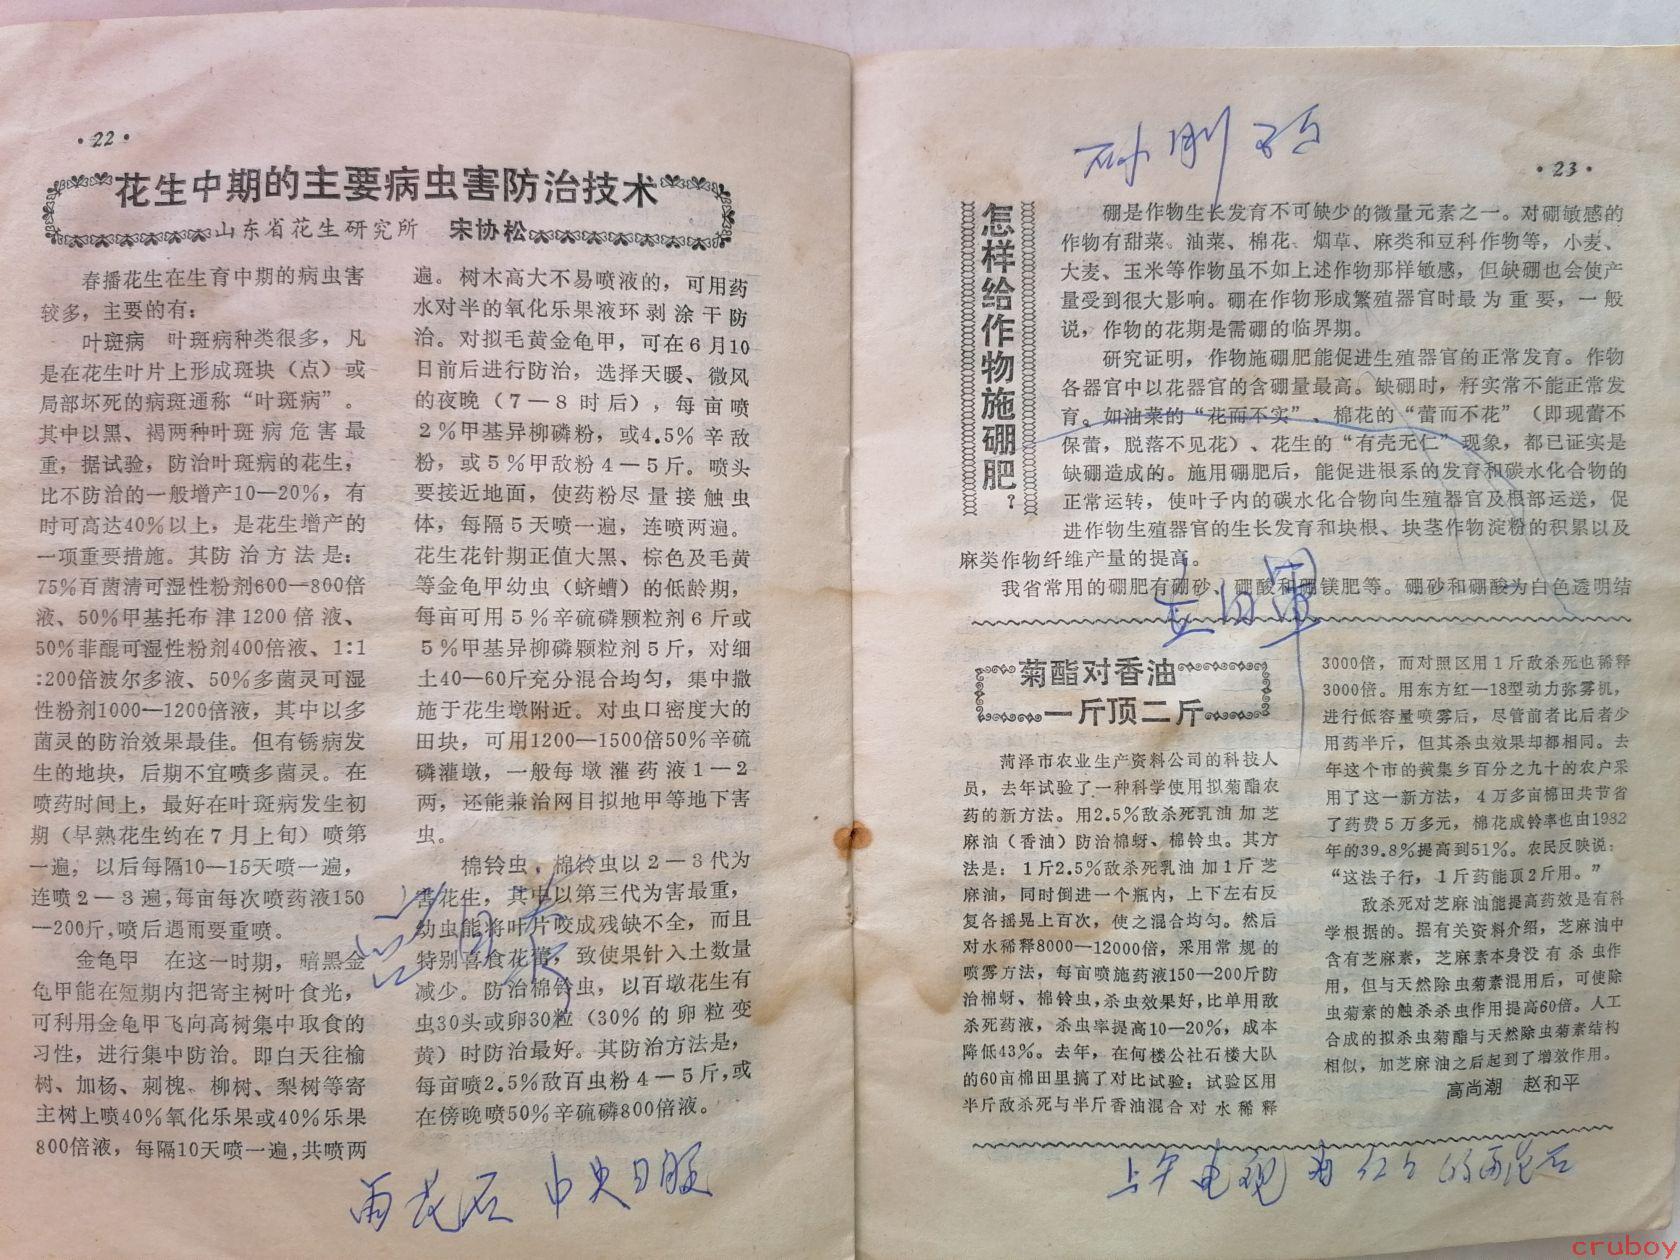 ·22·
花生中期的主要病虫害防治技术
山东省花生研究所 宋协松
春播花生在生育中期的病虫害
较多，主要的有：
叶斑病 叶斑病种类很多，凡
是在花生叶片上形成斑块（点）或
局部坏死的病斑通称“叶斑病”。
其中以黑、褐两种叶斑病危害最
重，据试验，防治叶斑病的花生，
比不防治的一般增产10—20％，有
时可高达40％以上，是花生增产的
一项重要措施。其防治方法是：
75％百菌清可湿性粉剂600—800倍
液、50％甲基托布津1200倍液、
50％菲醌可湿性粉剂400倍液、1:1
:200倍波尔多液、50％多菌灵可湿
性粉剂1000—1200倍液，其中以多
菌灵的防治效果最佳。但有锈病发
生的地块，后期不宜喷多菌灵。在
喷药时间上，最好在叶斑病发生初
期（早熟花生约在7月上旬）喷第
一遍，以后每隔10—15天喷一遍，
连喷2—3遍，每亩每次喷药液150
—200斤，喷后遇雨要重喷。
金龟甲 在这一时期，暗黑金
龟甲能在短期内把寄主树叶食光，
可利用金龟甲飞向高树集中取食的
习性，进行集中防治。即白天往榆
树、加杨、刺槐、柳树、梨树等寄
主树上喷40％氧化乐果或40％乐果
800倍液，每隔10天喷一遍，共喷两
遍。树木高大不易喷液的，可用药
水对半的氧化乐果液环剥涂干防
治。对拟毛黄金龟甲，可在6月10
日前后进行防治，选择天暖、微风
的夜晚（7—8时后），每亩喷
2％甲基异柳磷粉，或4.5％辛敌
粉，或5％甲敌粉4—5斤。喷头
要接近地面，使药粉尽量接触虫
体，每隔5天喷一遍，连喷两遍。
花生花针期正值大黑、棕色及毛黄
等金龟甲幼虫（蛴螬）的低龄期，
每亩可用5％辛硫磷颗粒剂6斤或
5％甲基异柳磷颗粒剂5斤，对细
土40—60斤充分混合均匀，集中撒
施于花生墩附近。对虫口密度大的
田块，可用1200—1500倍50％辛硫
磷灌墩，一般每墩灌药液1—2
两，还能兼治网目拟地甲等地下害
虫。
棉铃虫，棉铃虫以2—3代为
害花生，其中以第三代为害最重，
幼虫能将叶片咬成残缺不全，而且
特别喜食花蕾，致使果针入土数量
减少。防治棉铃虫，以百墩花生有
虫30头或卵30粒（30％的卵粒变
黄）时防治最好。其防治方法是，
每亩喷2.5％敌百虫粉4—5斤，或
在傍晚喷50％辛硫磷800倍液。
中央日服
·23·
怎样给作物施硼肥？
硼是作物生长发育不可缺少的微量元素之一。对硼敏感的
作物有甜菜、油菜、棉花、烟草、麻类和豆科作物等，小麦、
大麦、玉米等作物虽不如上述作物那样敏感，但缺硼也会使产
量受到很大影响。硼在作物形成繁殖器官时最为重要，一般
说，作物的花期是需硼的临界期。
研究证明，作物施硼肥能促进生殖器官的正常发育。作物
各器官中以花器官的含硼量最高。缺硼时，籽实常不能正常发
育。如油菜的“花而不实”、棉花的“蕾而不花”（即现蕾不
保蕾，脱落不见花）、花生的“有壳无仁”现象，都已证实是
缺硼造成的。施用硼肥后，能促进根系的发育和碳水化合物的
正常运转，使叶子内的碳水化合物向生殖器官及根部运送，促
进作物生殖器官的生长发育和块根、块茎作物淀粉的积累以及
麻类作物纤维产量的提高。
我省常用的硼肥有硼砂、硼酸和硼镁肥等。硼砂和硼酸为白色透明结
菊酯对香油
一斤顶二斤
菏泽市农业生产资料公司的科技人
员，去年试验了一种科学使用拟菊酯农
药的新方法。用2.5％敌杀死乳油加芝
麻油（香油）防治棉蚜、棉铃虫。其方
法是：1斤2.5％敌杀死乳油加1斤芝
麻油，同时倒进一个瓶内，上下左右反
复各摇晃上百次，使之混合均匀。然后
对水稀释8000—12000倍，采用常规的
喷雾方法，每亩喷施药液150—200斤防
治棉蚜、棉铃虫，杀虫效果好，比单用敌
杀死药液，杀虫率提高10—20％，成本
降低43％。去年，在何楼公社石楼大队
的60亩棉田里搞了对比试验：试验区用
半斤敌杀死与半斤香油混合对水稀释
3000倍，而对照区用1斤敌杀死也稀释
3000倍。用东方红—18型动力弥雾机，
进行低容量喷雾后，尽管前者比后者少
用药半斤，但其杀虫效果却都相同。去
年这个市的黄集乡百分之九十的农户采
用了这一新方法，4万多亩棉田共节省
了药费5万多元，棉花成铃率也由1982
年的39.8％提高到51％。农民反映说：
“这法子行，1斤药能顶2斤用。”
敌杀死对芝麻油能提高药效是有科
学根据的。据有关资料介绍，芝麻油中
含有芝麻素，芝麻素本身没有杀虫作
用，但与天然除虫菊素混用后，可使除
虫菊素的触杀杀虫作用提高60倍。人工
合成的拟杀虫菊酯与天然除虫菊素结构
相似，加芝麻油之后起到了增效作用。
高尚潮 赵和平
cruboy